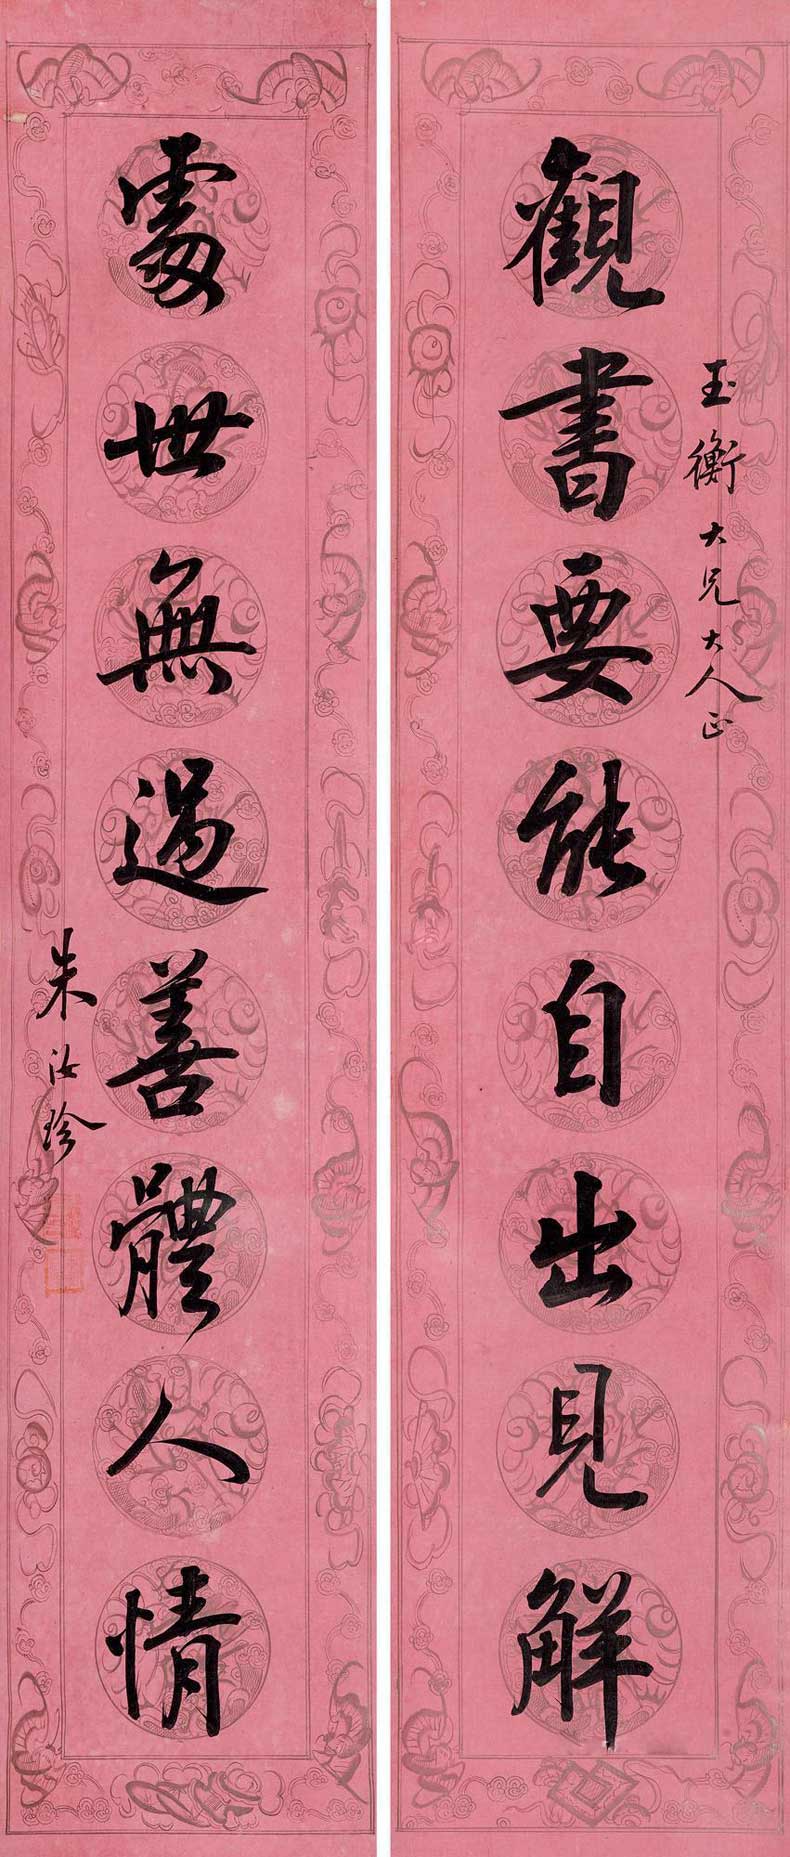 觀書要能自出見解
玉衡大兄大人正
處世無過善體人情
朱汝珍